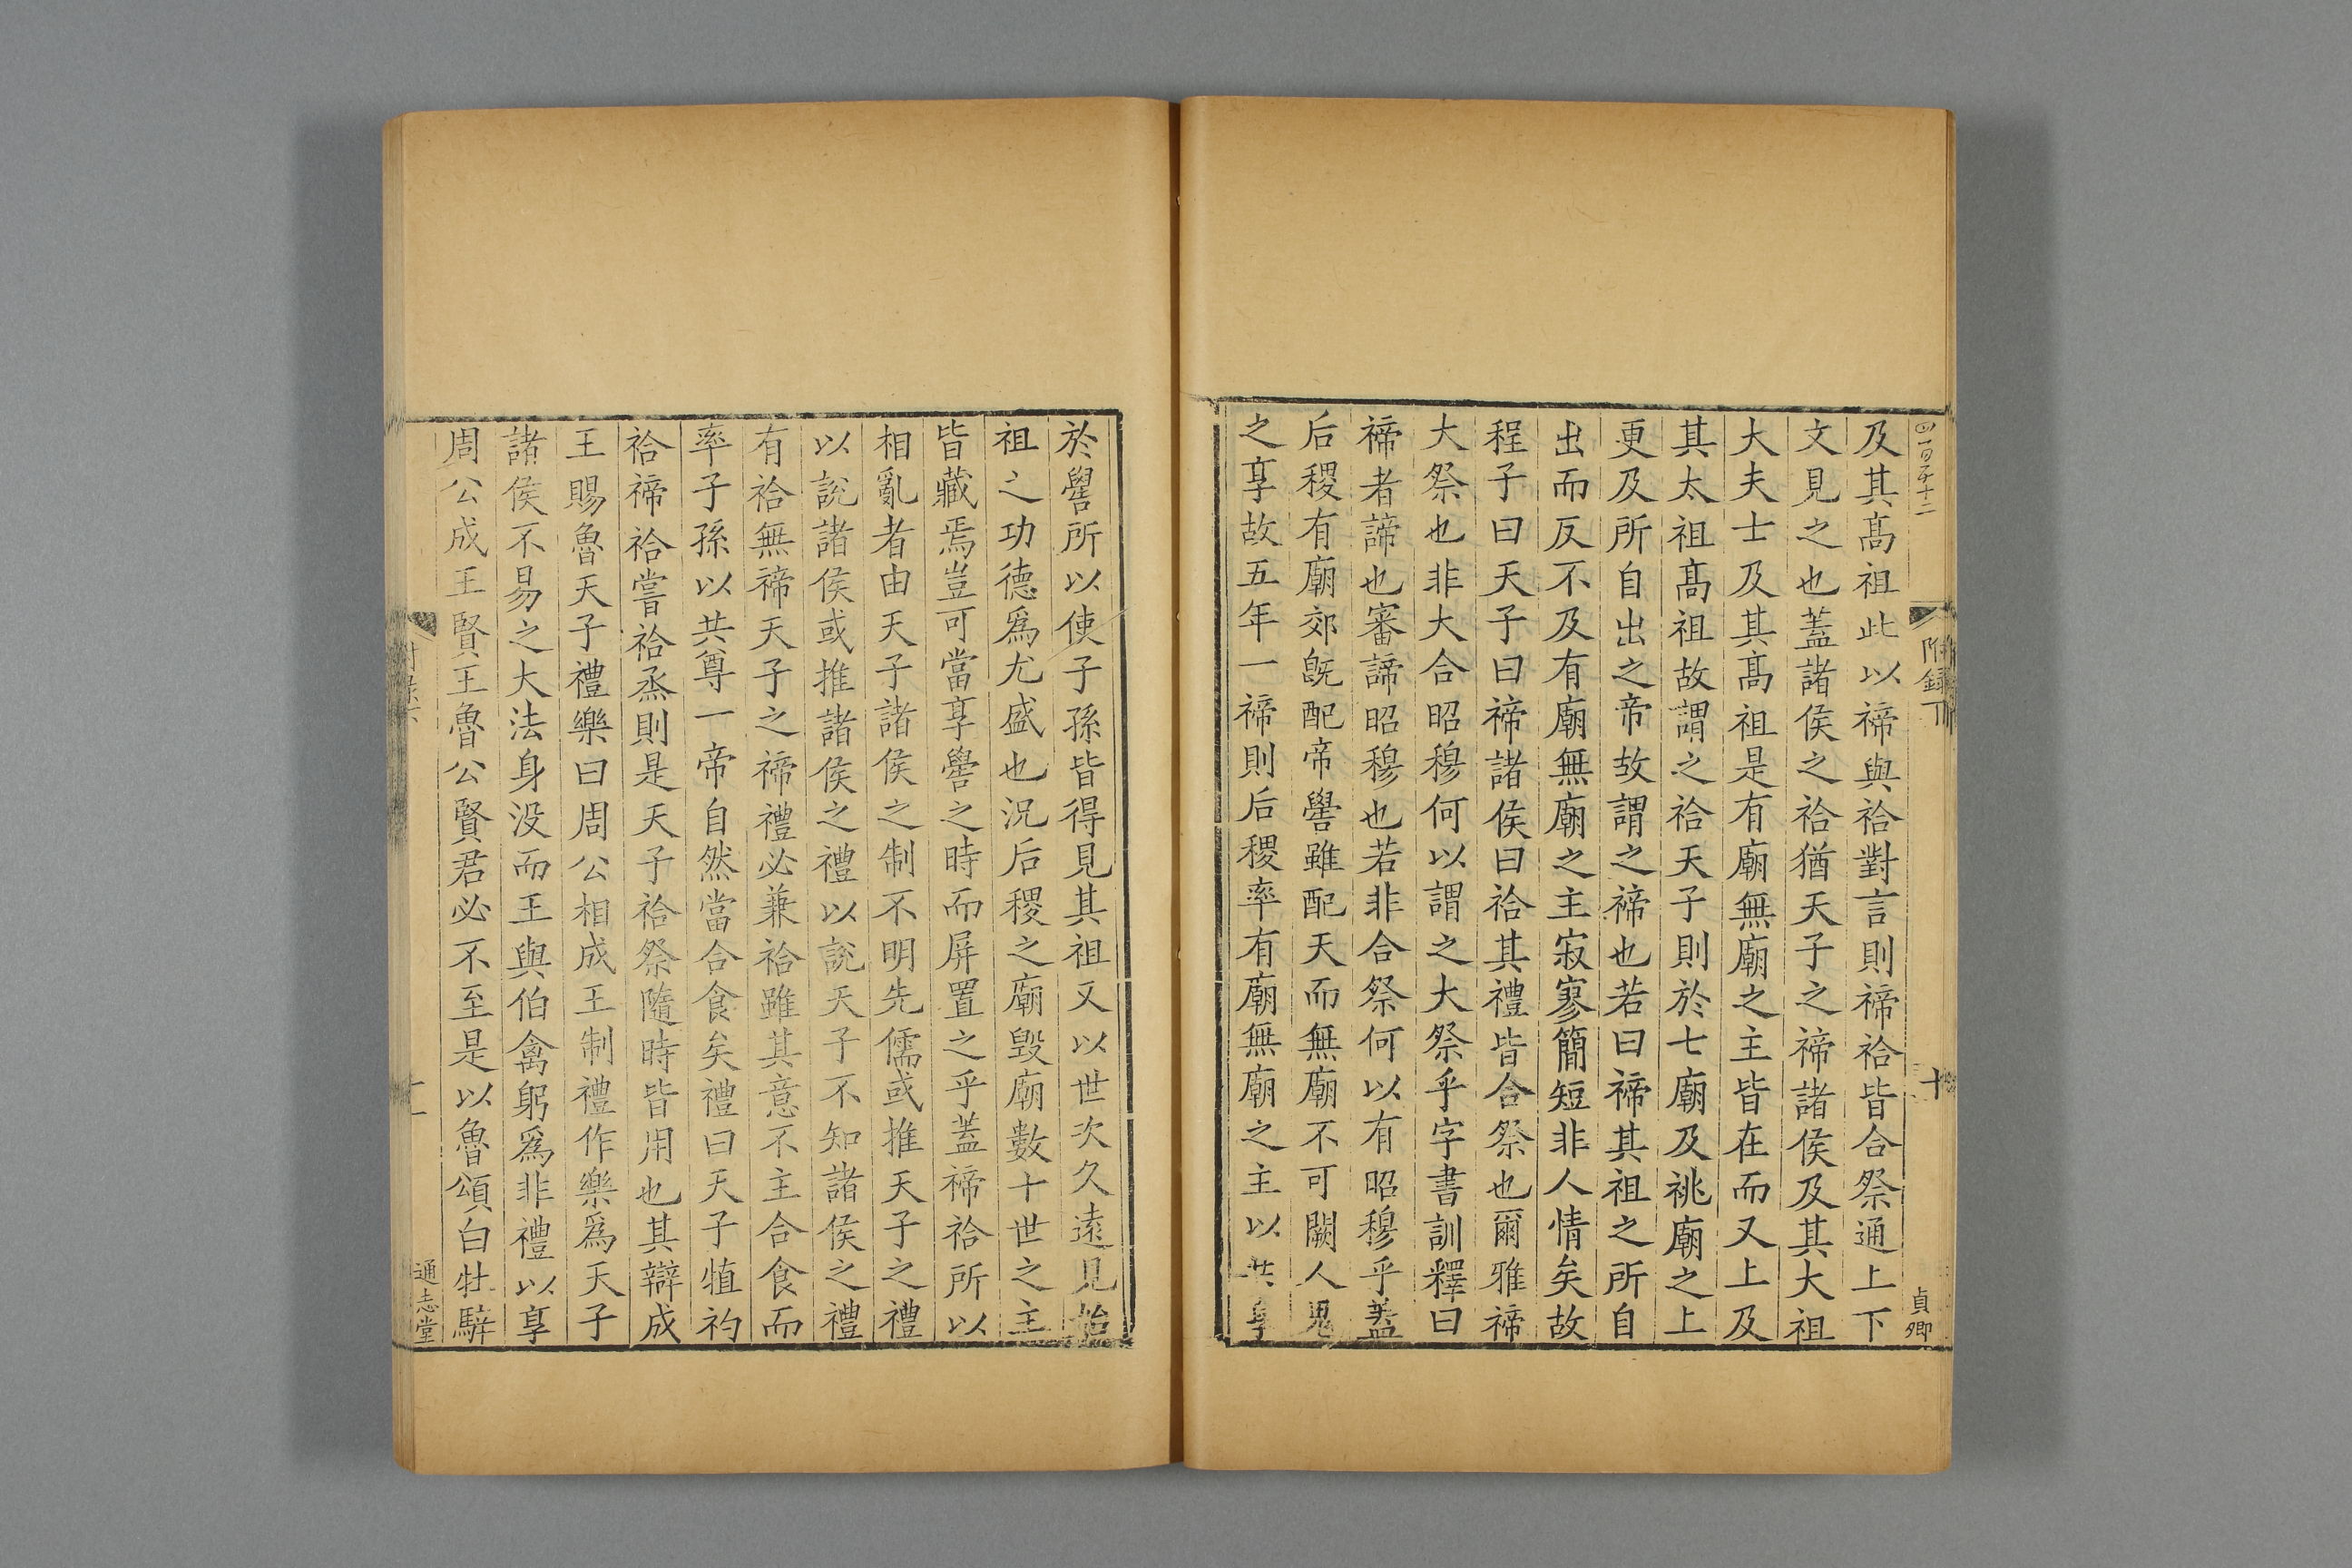 四百五十二
附錄下
十
貞卿
及其髙祖此以禘與祫對言則禘祫皆合祭通上下
文見之也蓋諸侯之祫猶天子之禘諸侯及其大祖
大夫士及其髙祖是有廟無廟之主皆在而又上及
其太祖髙祖故謂之祫天子則於七廟及祧廟之上
更及所自出之帝故謂之禘也若曰禘其祖之所自
出而反不及有廟無廟之主寂寥簡短非人情矣故
程子曰天子曰禘諸侯曰祫其禮皆合祭也爾雅禘
大祭也非大合昭穆何以謂之大祭乎字書訓釋曰
禘者諦也審諦昭穆也若非合祭何以有昭穆乎蓋
后稷有廟郊旣配帝嚳雖配天而無廟不可闕人鬼
之享故五年一禘則后稷率有廟無廟之主以共享
於嚳所以使子孫皆得見其祖又以世次久遠見始
祖之功德爲尤盛也況后稷之廟毁廟數十世之主
皆藏焉豈可當享嚳之時而屏置之乎蓋禘祫所以
相亂者由天子諸侯之制不明先儒或推天子之禮
以說諸侯或推諸侯之禮以說天子不知諸侯之禮
有祫無禘天子之禘禮必兼祫雖其意不主合食而
率子孫以共尊一帝自然當合食矣禮曰天子犆礿
祫禘祫嘗祫烝則是天子祫祭隨時皆用也其辯成
王賜魯天子禮樂曰周公相成王制禮作樂爲天子
諸侯不易之大法身没而王與伯禽躬爲非禮以享
周公成王賢王魯公賢君必不至是以魯頌白牡騂
通志堂